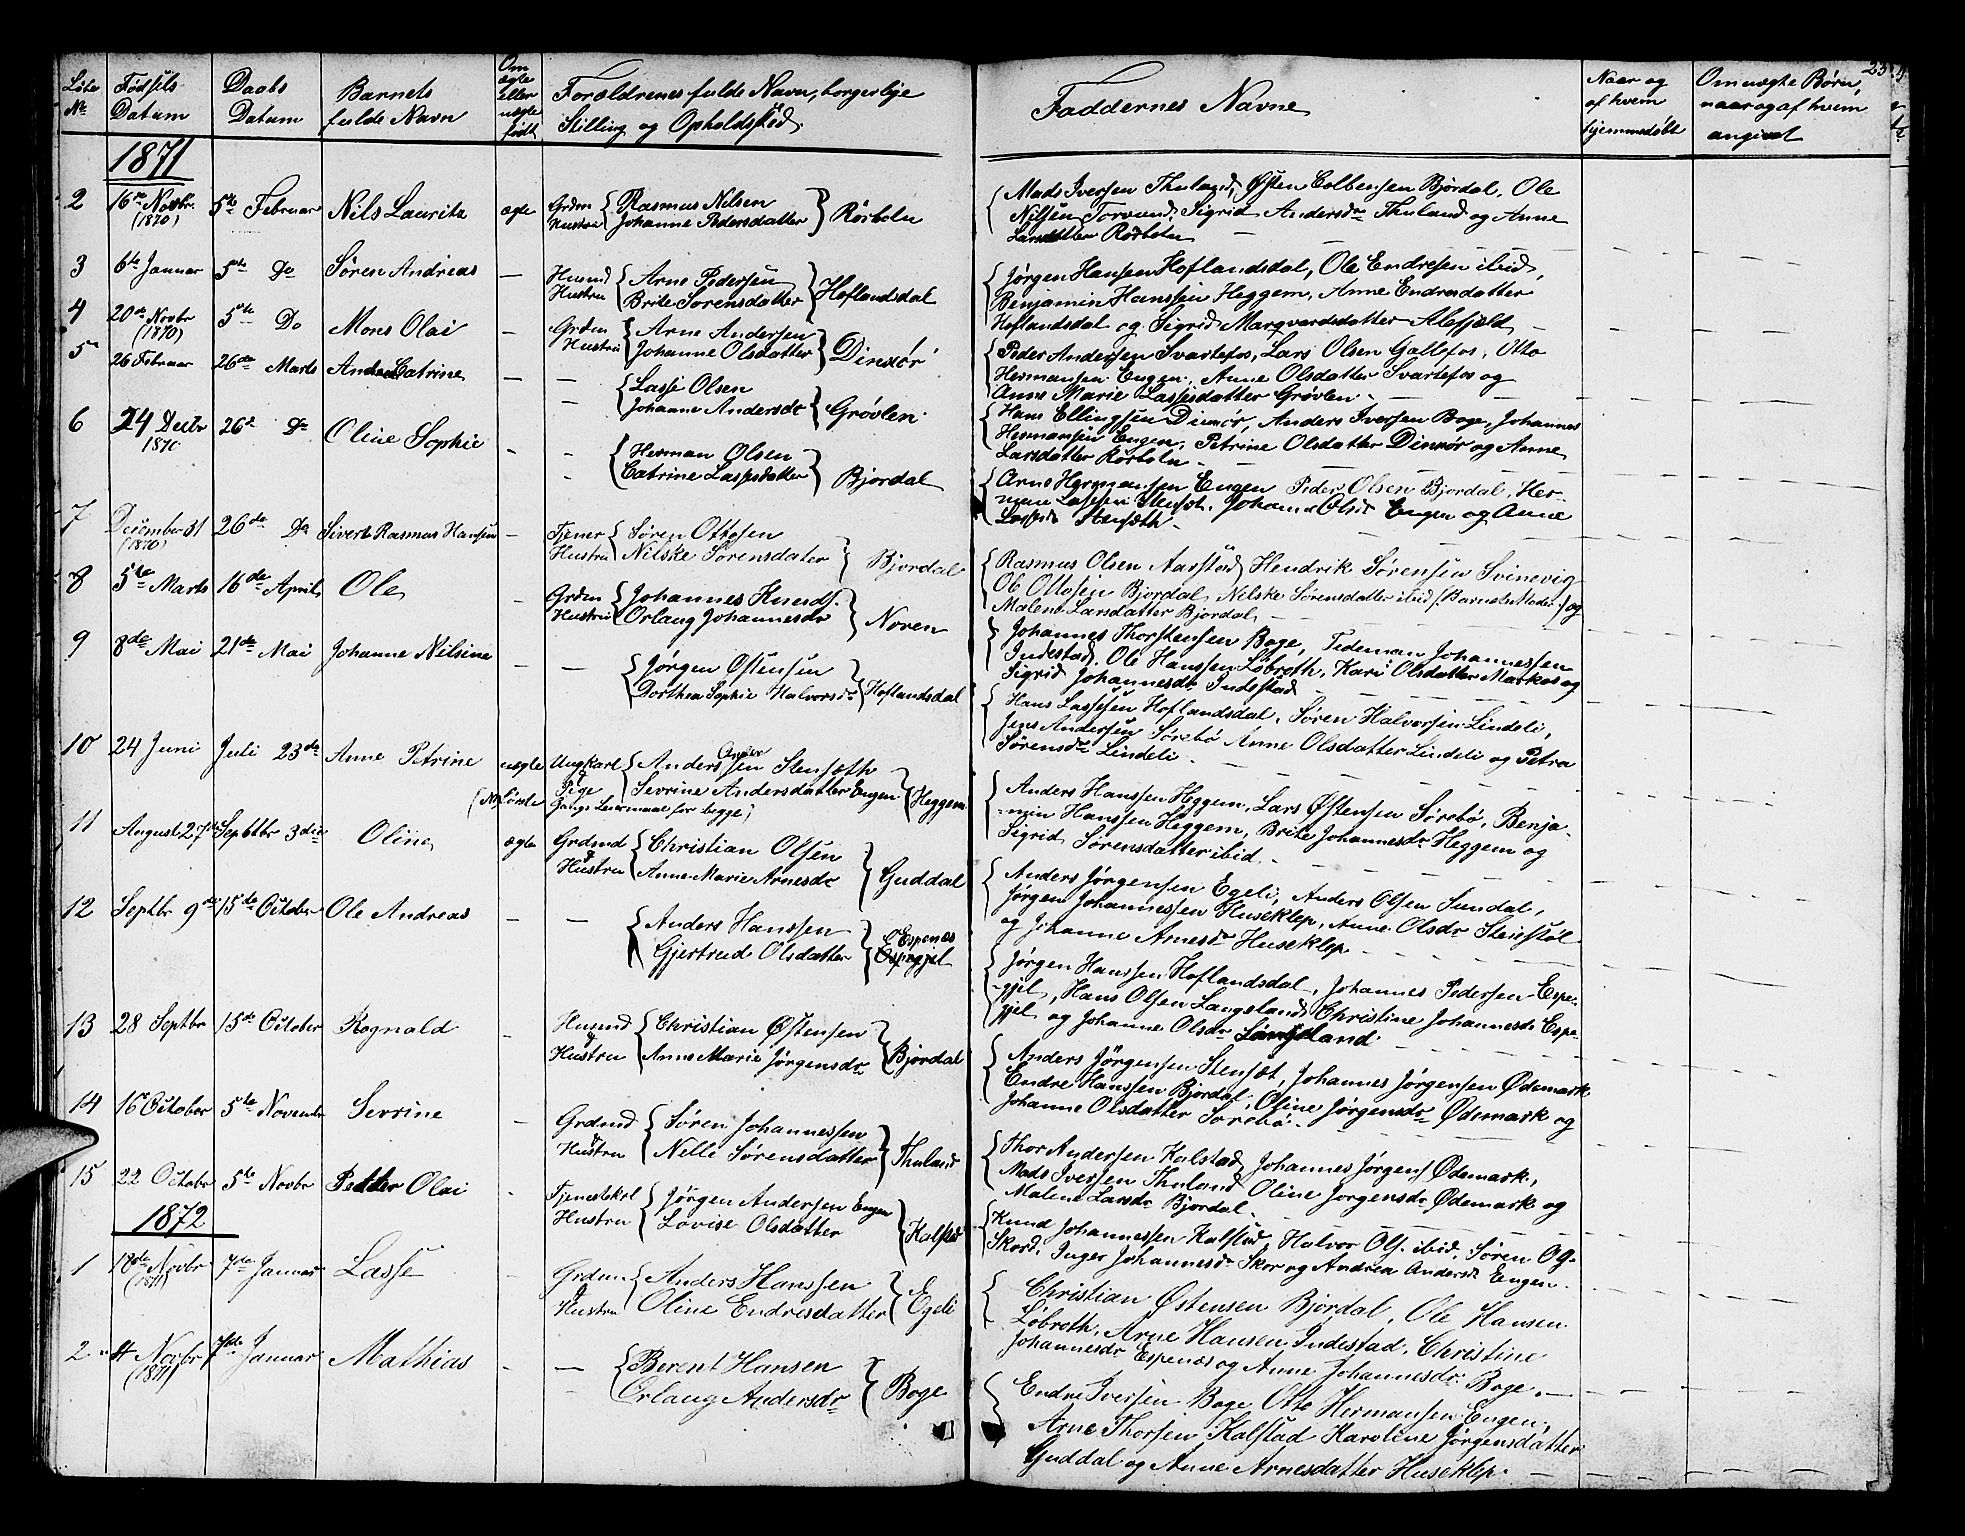 Løbe Fødsels Daabs Barnets Om ægte eller uægte født Forældrenes fulde Navn, borgerlige Faddernes Navne Naar og af hvem hjemmedøbt Om uægte Børn, naar og af hvem angivet
No Datum Datum fulde Navn Stilling og Opholdssted
1871
2 16de Novbr. (1870) 5te Februar Nils Lauritz ægte Grdm Hustru Rasmus Nilsen
Johanne Pedersdatter Rörboln
Mads Iversen Thuland, Østen Colbensen Bjordal, Ole
Nilsen Torvund, Sigrid Andersdr Thuland og Anne
Larsdatter Rörboln
3 6te Januar 5te Do Søren Andreas — Husmd Hustru Arne Pedersen
Brite Sørensdatter Hoflandsdal
Jørgen Hansen Hoflandsdal, Ole Endresen ibid,
Benjamin Hanssen Heggem, Anne Endresdatter
Hoflandsdal og Sigrid Marqvardsdatter Alefjæld
4 20de Novbr (1870) 5te Do Mons Olai — Grdm Hustru Arne Andersen
Johanne Olsdatter Dinsør
Peder Andersen Svartefos, Lars Olsen Gallefos, Otto
Hermansen Engen, Anne Olsdatter Svartefos og
Anne Marie Lassesdatter Grövlen
5 26 Februar 26de Marts Catrine — — Lasse Olsen
Johanne Andersdr Grövlen
Hans Ellingsen Dinsør, Anders Iversen Boge, Johannes
Hermansen Engen, Petrine Olsdatter Dinsør og Anne
Larsdatter Rörboln
6 24 Decbr 1870 26de Do Oline Sophie — — Herman Olsen
Catrine Lassesdatter Bjordal
Arne Hermansen Engen Peder Olsen Bjordal, Her-
man Lassen Stensæt, Johanne Olsd Engen og Anne
Lassesd Stensæth
7 December 31 (1870) 26de Do Sivert Rasmus Hansen — Tjener Hustru Søren Ottosen
Nilske Sørensdater Bjordal
Rasmus Olsen Aarstad Hendrik Sørensen Svinevig
Ole Ottosen Bjordal Nilske Sørensdatter ibid (: Barnets Moder :) og
Malene Larsdatter Bjordal
8 5te Marts 16de April Ole — Grdm Hustru Johannes Knuds.
Orlaug Johannesdr Noren
Johannes Thorstensen Boge, Tideman Johannessen
Indestad, Ole Hanssen Løbroth, Kari Olsdatter Markas og
Sigrid Johannesdr Indestad
9 8de Mai 21de Mai Johanne Nilsine — — Jørgen Østensen
Dorthea Sophie Halvorsdr Hoflandsdal
Hans Lassesen Hoflandsdal, Søren Halvorsen Lindeli,
Jens Andersen Sørebø Anne Olsdatter Lindeli og Petra
Sørensdr Lindeli
10 24 Juni Juli 23de Anne Petrine uægte Ungkarl Pige Anders Andersen Stensæth
Sevrine Andersdatter Engen Heggem
(No første Gangs Leiermaal for begge)
Anders Hanssen Heggem, Lars Østensen Sørebø, Benja-
min Hanssen Heggem, Brite Johannesdr Heggem og
Sigrid Sørensdatter ibid.
11 August 27de Septbr 3die Oline ægte Grdmd & Hustru Christian Olsen
Anne Marie Arnesdr Guddal
Anders Jørgensen Egeli, Anders Olsen Sundal,
Jørgen Johannessen Huseklep, Anne Olsdr Steinstøl
og Johanne Arnesdr Huseklep
12 Septbr 9de 15de October Ole Andreas — — Anders Hanssen
Gjertrud Olsdatter Espenes Espegjel
Jørgen Hanssen Hoflandsdal, Johannes Pedersen Espe-
gjel, Hans Olsen Langeland, Christine Johannesdr Espe-
gjel og Johanne Olsdr Langeland
13 28 Septbr 15de October Rognald - Husmd & Hustru Christian Østensen
Anne Marie Jørgensdr Bjordal
Anders Jörgensen Stensæt, Johannes Jørgensen Ødemark
Endre Hanssen Bjordal, Oline Jørgensdr Ødemark og
Johanne Olsdatter Sorebö
14 16 October 5te Novembr Sevrine - Grdmd & Hustru Søren Johannessen
Nille Sørensdatter Thuland
Thor Andersen Kalstad, Johannes Jørgens Ødemark,
Mads Iversen Thuland Oline Jorgensdr Ødemark og
Malene Larsdr Bjordal
15 22 October 5te Novbr Petter Olai - Tjenestekrl Hustru Jørgen Andersen Engen
Lovise Olsdatter Kalstad
Knud Johannessen Kalstad, Halvor Ols. ibid, Søren Ols.
Skord, Inger Johannesdr Skor og Andrea Andersd Engen
1872
1 18de Novbr (1871) 7de Januar Lasse - Grdm & Hustru Anders Hanssen
Oline Endresdatter Egeli
Christian Østensen Bjordal, Ole Hansen
Løbroth, Arne Hansen Indestad, Christine
Johannesdr Espenæs og Anne Johannesdr Boge
2 4 Novbr (1871) 7de Januar Mathias - — Berent Hansen
Orlaug Andersdr Boge
Endre Iversen Boge Otto Hermansen Engen,
Arne Thorsen Kalstad Karoline Jørgensdatter
Guddal og Anne Arnesdatter Huseklep